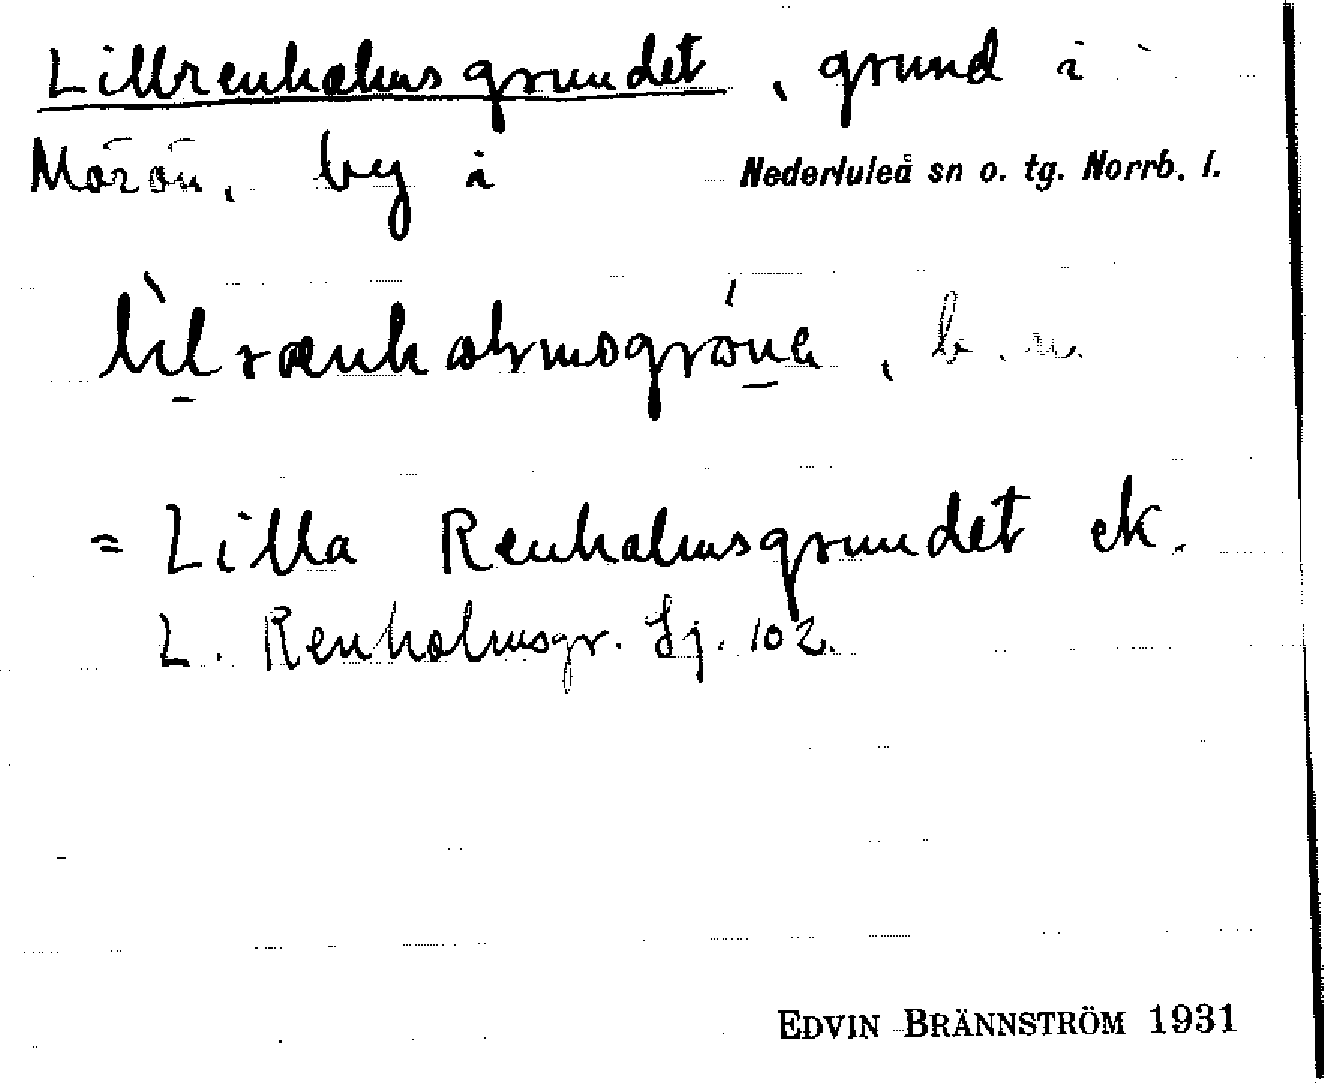 Lillrenholmsgrundet, grund i
Mörön, by i Nederluleå sn o. tg. Norrb. l.
lìlrænholmsgróna, b. n.
= Lilla Renholmsgrundet ek.
L. Renholmsgr. Sj. 102.
EDVIN BRÄNNSTRÖM 1931